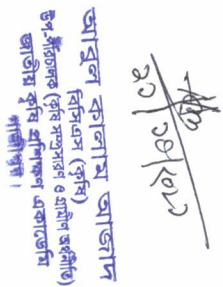 আবুল কালাম আজাদ
বিসিএস (কৃষি)
উপ-পরিচালক (কৃষি সম্প্রসারণ ও গ্রামীণ অর্থনীতি)
জাতীয় কৃষি প্রশিক্ষণ একাডেমি
গাজীপুর।